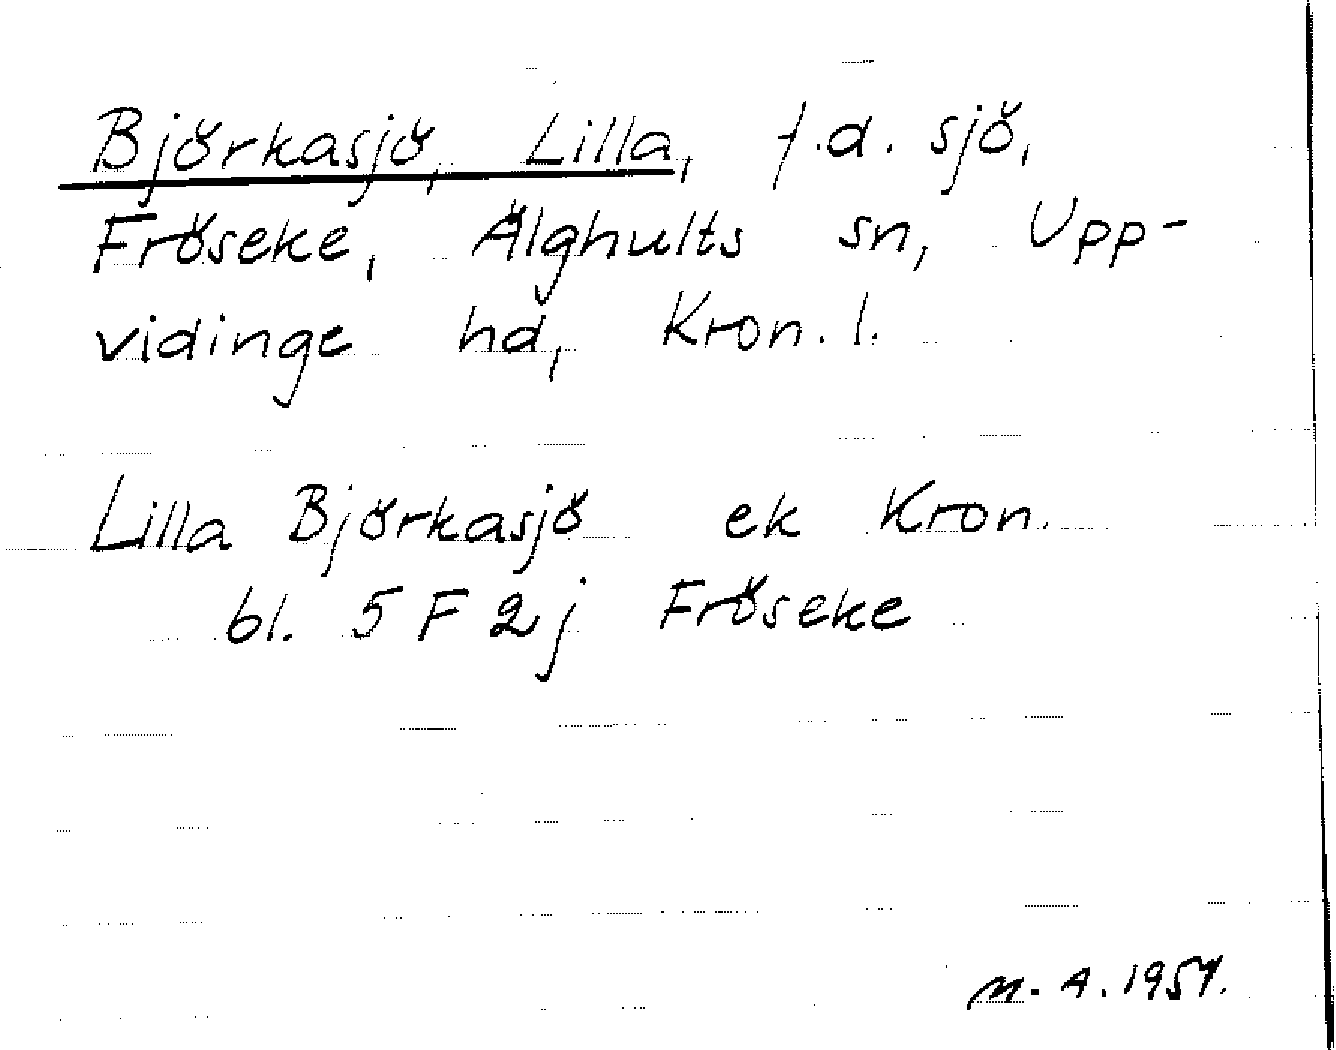 Björkasjö, Lilla, f.d. sjö,
Fröseke, Älghults sn, Upp-
vidinge hd, Kron. l.
Lilla Björkasjö ek Kron.
bl. 5 F 2 j Fröseke
M. A. 1957.